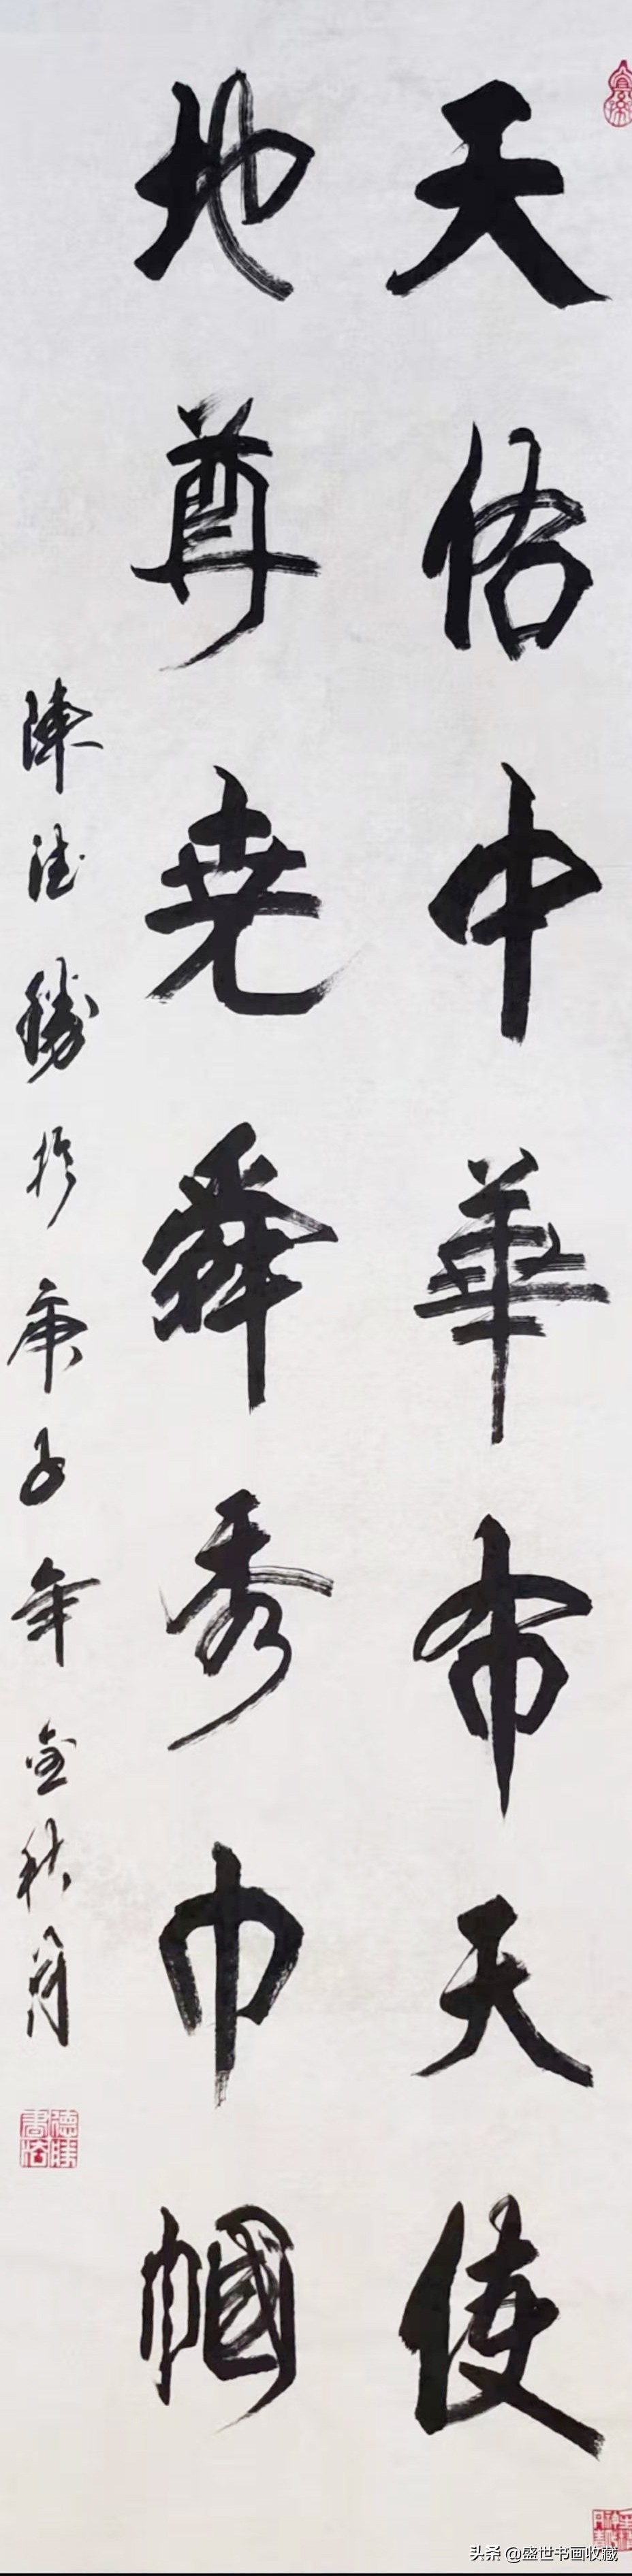 天佑中華布天使
地尊尧舜秀巾帼
陳德勝於庚子年金秋月
德勝書法
头条 @盛世书画收藏